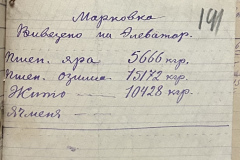 191
Марковка
Вивезено на Элеватор.
Пшен. яра 5666 кгр.
Пшен. озима 15172 кгр.
Жито — 10428 кгр.
Ячменя —